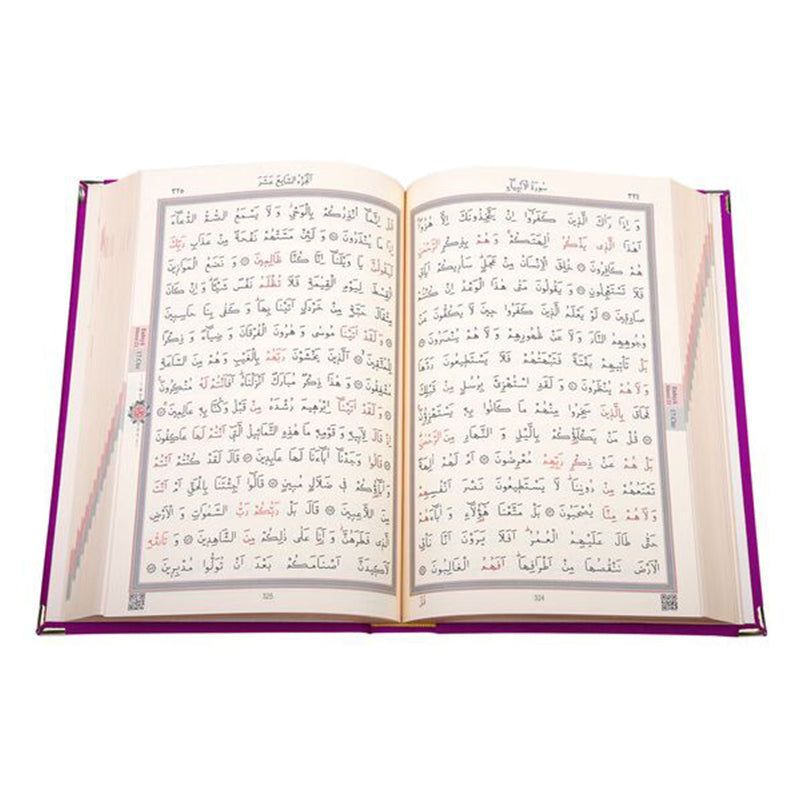 سُورَةُ الْاَنْبِيَاءِ ٣٢٤
وَ اِذَا رَاٰكَ الَّذينَ كَفَرُوا اِنْ يَتَّخِذُونَكَ اِلَّا هُزُوًا
اَهٰذَا الَّذى يَذْكُرُ اٰلِهَتَكُمْ وَ هُمْ بِذِكْرِ الرَّحْمٰنِ
هُمْ كَافِرُونَ خُلِقَ الْاِنْسَانُ مِنْ عَجَلٍ سَاُرِيكُمْ اٰيَاتى
فَلَا تَسْتَعْجِلُونِ وَ يَقُولُونَ مَتٰى هٰذَا الْوَعْدُ اِنْ كُنْتُمْ
صَادِقِينَ لَوْ يَعْلَمُ الَّذينَ كَفَرُوا حِينَ لَا يَكُفُّونَ عَنْ
وُجُوهِهِمُ النَّارَ وَ لَا عَنْ ظُهُورِهِمْ وَ لَا هُمْ يُنْصَرُونَ
بَلْ تَاْتِيهِمْ بَغْتَةً فَتَبْهَتُهُمْ فَلَا يَسْتَطِيعُونَ رَدَّهَا
وَ لَا هُمْ يُنْظَرُونَ وَ لَقَدِ اسْتُهْزِئَ بِرُسُلٍ مِنْ قَبْلِكَ
فَحَاقَ بِالَّذينَ سَخِرُوا مِنْهُمْ مَا كَانُوا بِه يَسْتَهْزِؤُنَ
قُلْ مَنْ يَكْلَؤُكُمْ بِالَّيْلِ وَ النَّهَارِ مِنَ الرَّحْمٰنِ
بَلْ هُمْ عَنْ ذِكْرِ رَبِّهِمْ مُعْرِضُونَ اَمْ لَهُمْ اٰلِهَةٌ
تَمْنَعُهُمْ مِنْ دُونِنَا لَا يَسْتَطِيعُونَ نَصْرَ اَنْفُسِهِمْ
وَ لَا هُمْ مِنَّا يُصْحَبُونَ بَلْ مَتَّعْنَا هٰؤُلَاءِ وَ اٰبَاءَهُمْ
حَتّٰى طَالَ عَلَيْهِمُ الْعُمُرُ اَفَلَا يَرَوْنَ اَنَّا نَاْتِى
الْاَرْضَ نَنْقُصُهَا مِنْ اَطْرَافِهَا اَفَهُمُ الْغَالِبُونَ
قُلْ
324
اَلْجُزْءُ السَّابِعَ عَشَرَ ٣٢٥
قُلْ اِنَّمَا اُنْذِرُكُمْ بِالْوَحْىِ وَ لَا يَسْمَعُ الصُّمُّ الدُّعَاءَ
اِذَا مَا يُنْذَرُونَ وَ لَئِنْ مَسَّتْهُمْ نَفْحَةٌ مِنْ عَذَابِ رَبِّكَ
لَيَقُولُنَّ يَا وَيْلَنَا اِنَّا كُنَّا ظَالِمِينَ وَ نَضَعُ الْمَوَازِينَ
الْقِسْطَ لِيَوْمِ الْقِيٰمَةِ فَلَا تُظْلَمُ نَفْسٌ شَيْئًا وَ اِنْ كَانَ
مِثْقَالَ حَبَّةٍ مِنْ خَرْدَلٍ اَتَيْنَا بِهَا وَ كَفٰى بِنَا حَاسِبِينَ
وَ لَقَدْ اٰتَيْنَا مُوسٰى وَ هٰرُونَ الْفُرْقَانَ وَ ضِيَاءً وَ ذِكْرًا
لِلْمُتَّقِينَ اَلَّذينَ يَخْشَوْنَ رَبَّهُمْ بِالْغَيْبِ وَ هُمْ مِنَ السَّاعَةِ
مُشْفِقُونَ وَ هٰذَا ذِكْرٌ مُبَارَكٌ اَنْزَلْنَاهُ اَفَاَنْتُمْ لَهُ مُنْكِرُونَ
وَ لَقَدْ اٰتَيْنَا اِبْرٰهِيمَ رُشْدَهُ مِنْ قَبْلُ وَ كُنَّا بِه عَالِمِينَ
اِذْ قَالَ لِاَبِيهِ وَ قَوْمِه مَا هٰذِهِ التَّمَاثِيلُ الَّتى اَنْتُمْ لَهَا عَاكِفُونَ
قَالُوا وَجَدْنَا اٰبَاءَنَا لَهَا عَابِدِينَ قَالَ لَقَدْ كُنْتُمْ اَنْتُمْ
وَ اٰبَاؤُكُمْ فى ضَلَالٍ مُبِينٍ قَالُوا اَجِئْتَنَا بِالْحَقِّ اَمْ اَنْتَ
مِنَ اللَّاعِبِينَ قَالَ بَلْ رَبُّكُمْ رَبُّ السَّمٰوَاتِ وَ الْاَرْضِ
الَّذى فَطَرَهُنَّ وَ اَنَا عَلٰى ذٰلِكُمْ مِنَ الشَّاهِدِينَ وَ تَاللّٰهِ
لَاَكِيدَنَّ اَصْنَامَكُمْ بَعْدَ اَنْ تُوَلُّوا مُدْبِرِينَ
325